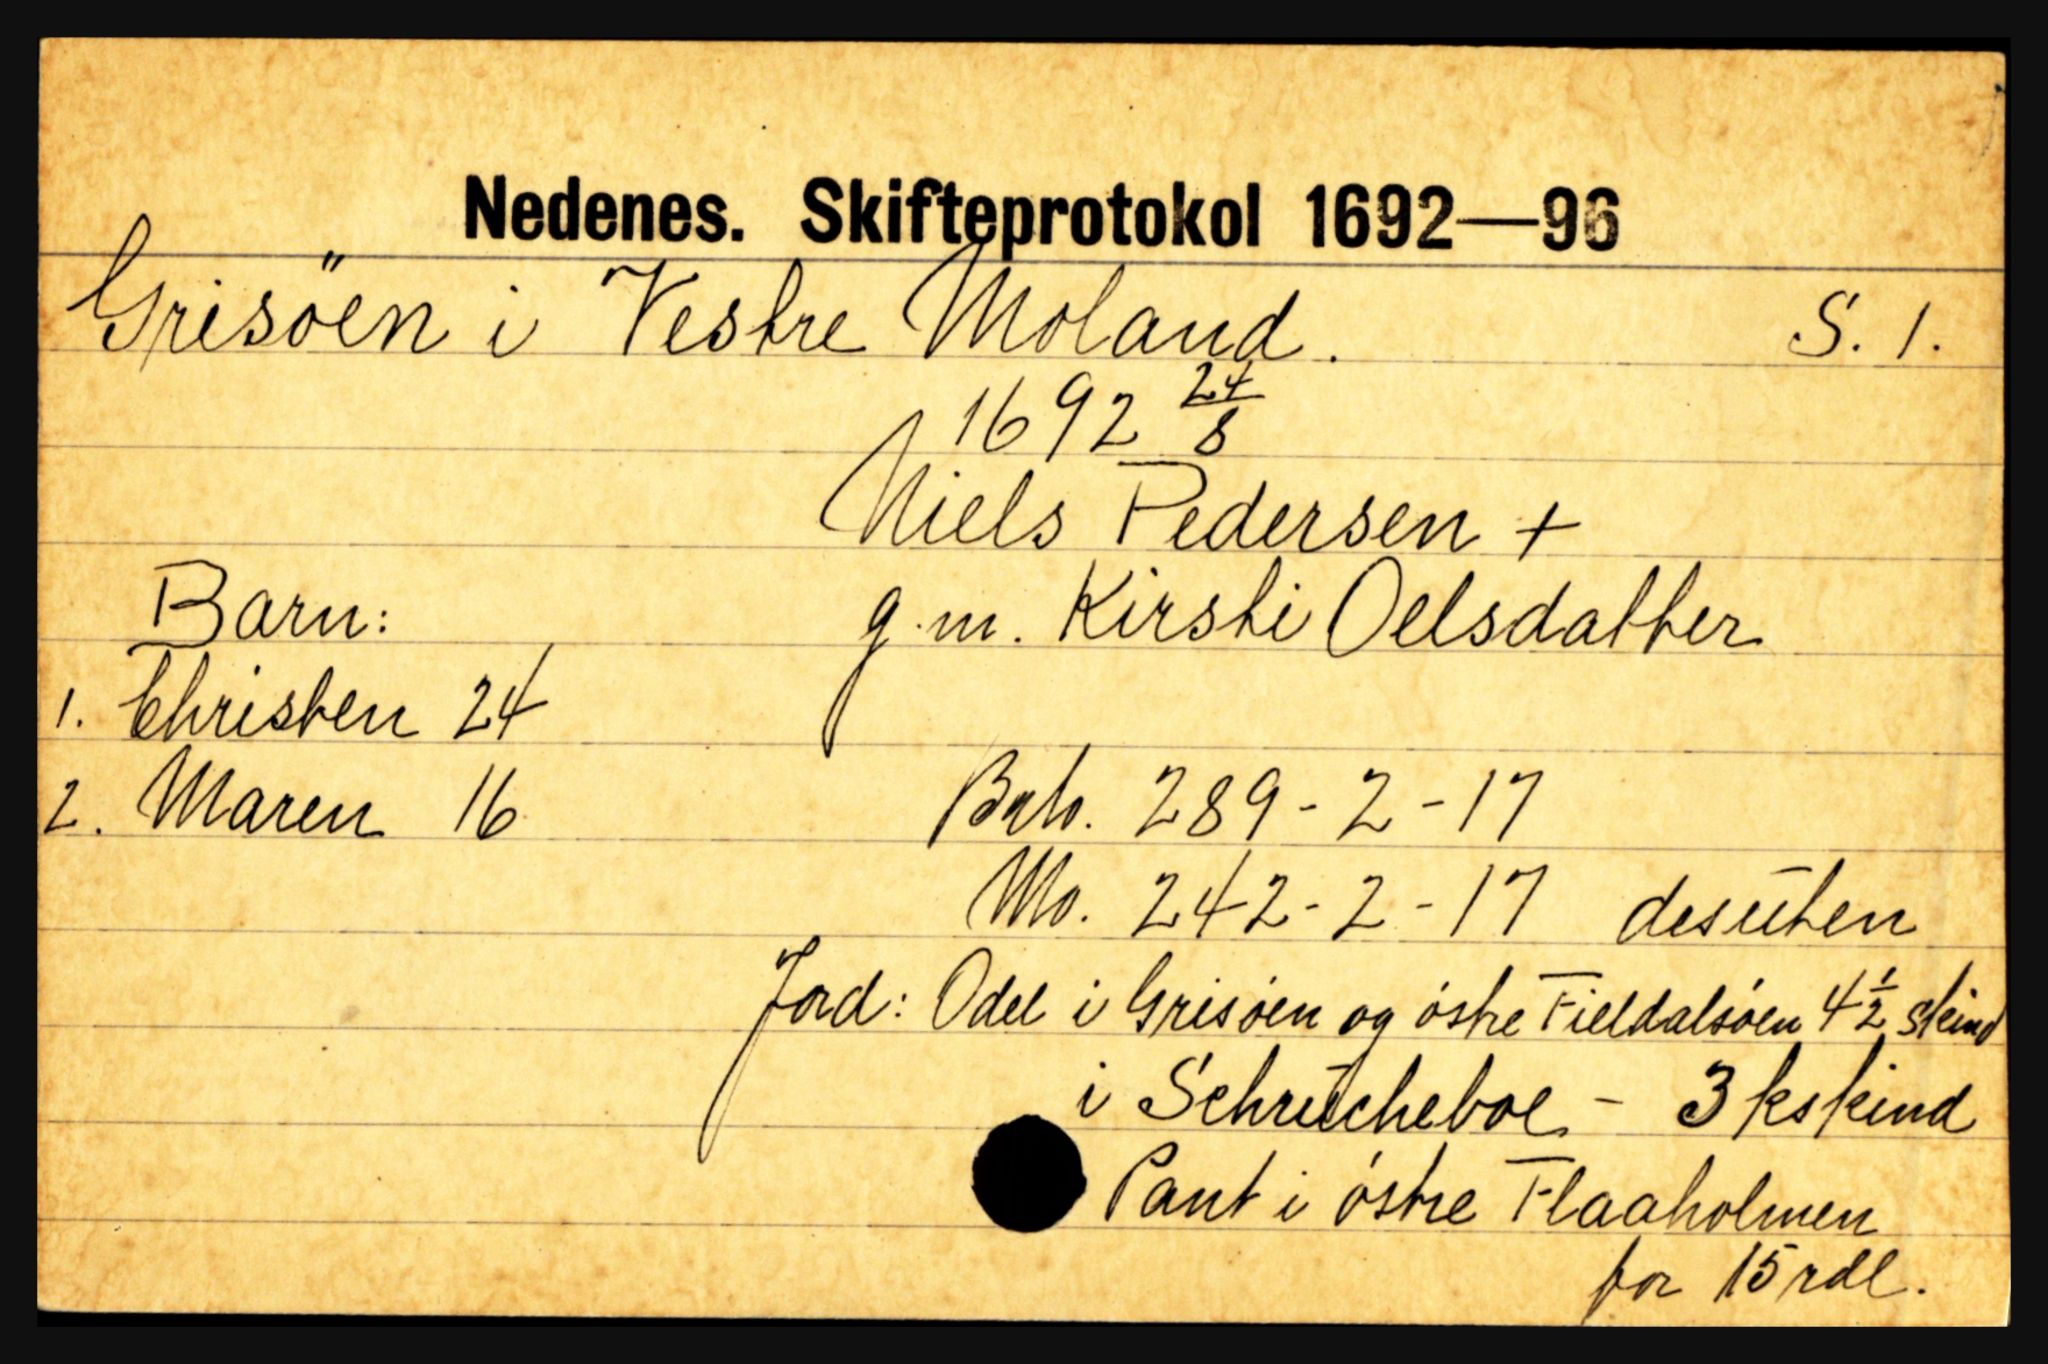 Nedenes. Skifteprotokol 1692—96
Grisöen i Vestre Moland. S. 1.
1692 24/8
Niels Pedersen +
Barn: g.m. Kirsti Oelsdatter
1. Christen 24
2. Maren 16 Brto. 289-2-17
Mo. 242-2-17 desūten
Jord: Odel i Grisöen og östre Fieldalsöen 4 1/2 skind
i Schrūcheboe - 3 kskind
Pant i östre Flaaholmen
for 15 rdl.